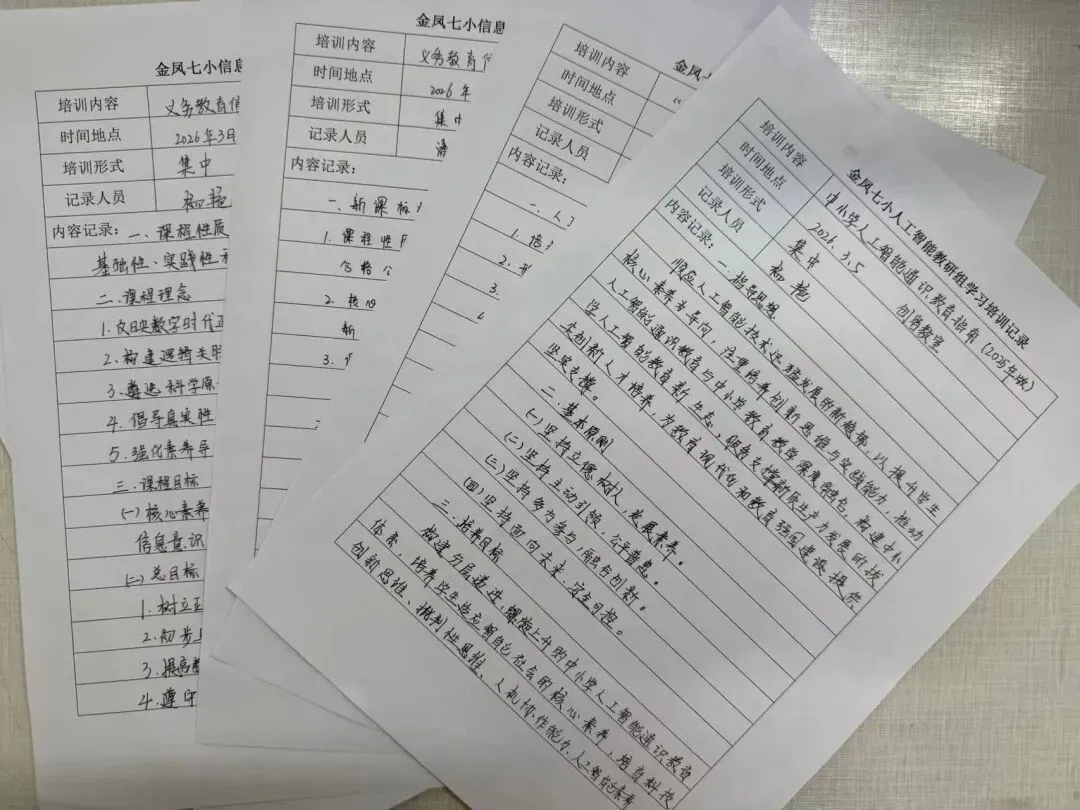 金凤七小信息
培训内容
义务教育信
时间地点
2026年3月
培训形式
集中
记录人员
杨艳
内容记录：一、课程性质
基础性、实践性
二、课程理念
1.反映数字时代正
2.构建逻辑关联
3.遵循科学原
4.倡导真实性
5.强化素养导
三、课程目标
(一)核心素养
信息意识
(二)总目标
1.树立正
2.初步
3.提高
4.遵守
金凤七小信息
培训内容
义务教育信
时间地点
2026年
培训形式
集中
记录人员
潘
内容记录：
一、新课标
1.课程性质
合格
2.核心
新
3.
金凤
培训内容
时间地点
培训形式
记录人员
内容记录：
一、人工
1.培
2.
3.
金凤七小人工智能教研组学习培训记录
培训内容
中小学人工智能通识教育指南（2025年版）
时间地点
2026.3.5 创客教室
培训形式
集中
记录人员
杨艳
内容记录：一、指导思想
顺应人工智能技术迅猛发展的新趋势，以提升学生
核心素养为导向，注重培养创新思维与实践能力，推动
人工智能通识教育与中小学教育教学深度融合，构建中小
学人工智能教育新生态，服务支撑新质生产力发展的拔
尖创新人才培养，为教育现代化和教育强国建设提供
坚实支撑。
二、基本原则
(一)坚持立德树人，发展素养。
(二)坚持主动引领，公平普惠。
(三)坚持多方参与，融合创新。
(四)坚持面向未来，安全可控。
三、培养目标
构建分层递进、螺旋上升的中小学人工智能通识教育
体系，培养学生适应智能社会的核心素养，培育科技
创新思维、批判性思维、人机协作能力、人工智能素养